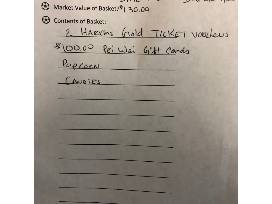 Market Value of Basket: $130.00
Contents of Basket:
2 Harkins Gold Ticket Vouchers
$100.00 Pei Wei Gift Cards
Popcorn
Candies